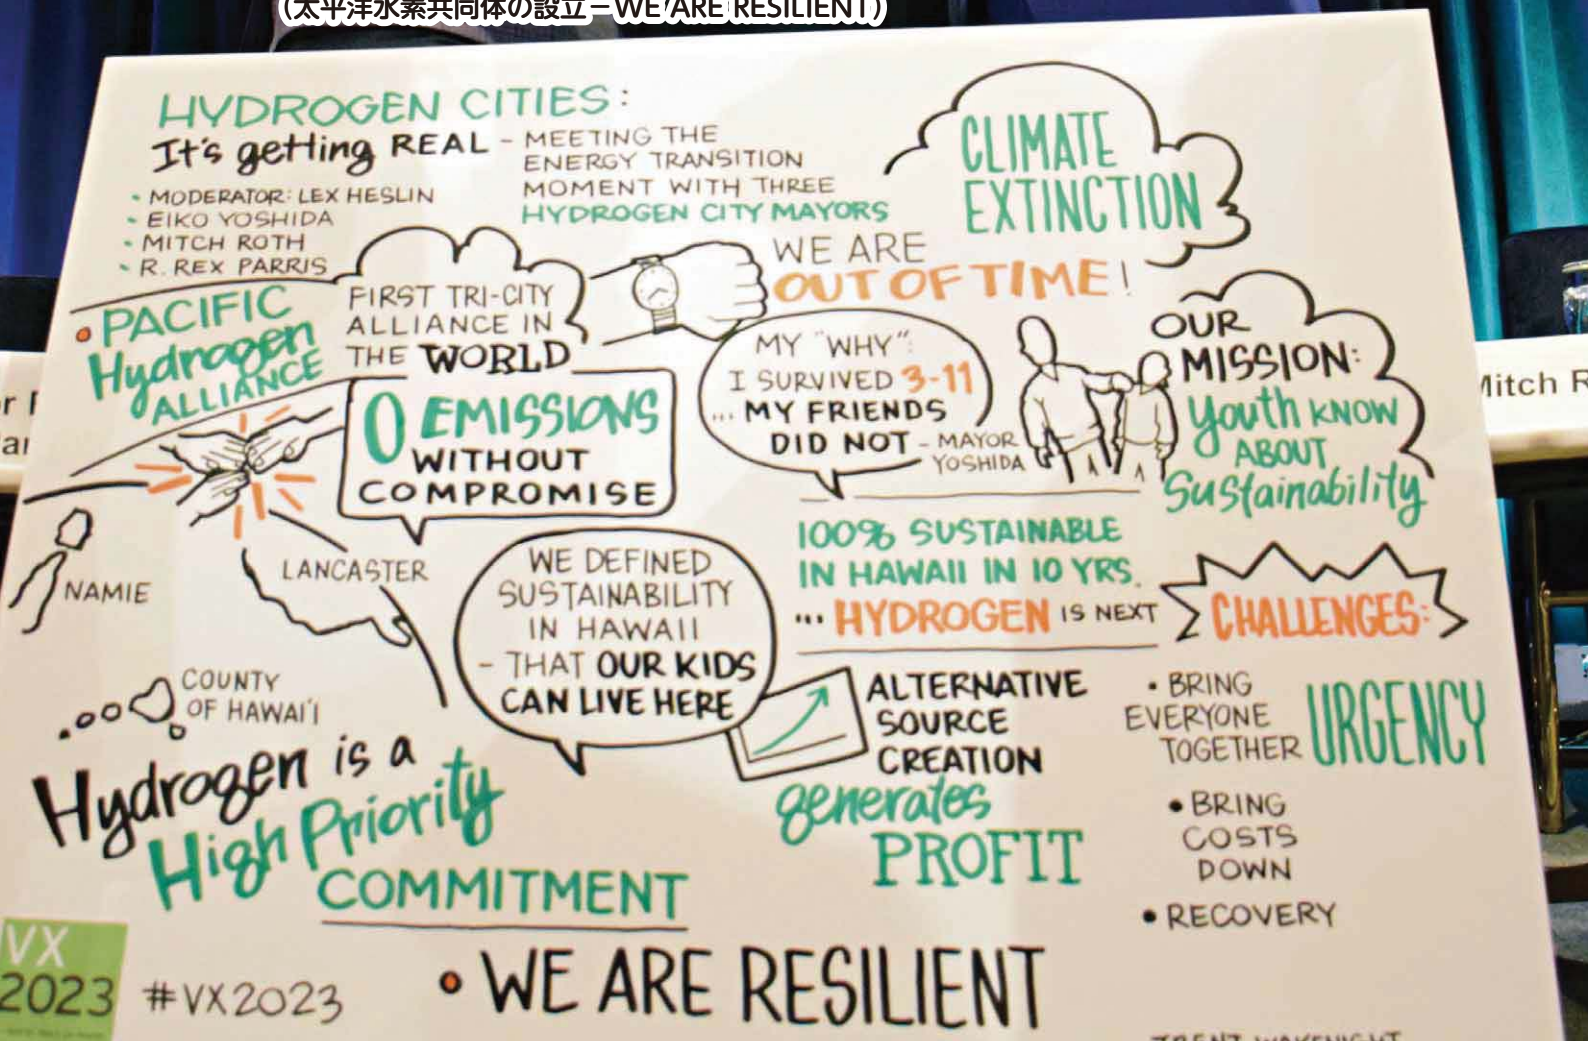 (太平洋水素共同体の設立－WE ARE RESILIENT)
HYDROGEN CITIES:
It's getting REAL - MEETING THE
ENERGY TRANSITION
MOMENT WITH THREE
HYDROGEN CITY MAYORS
• MODERATOR: LEX HESLIN
• EIKO YOSHIDA
• MITCH ROTH
• R. REX PARRIS
CLIMATE
EXTINCTION
WE ARE
OUT OF TIME!
• PACIFIC
Hydrogen
ALLIANCE
FIRST TRI-CITY
ALLIANCE IN
THE WORLD
0 EMISSIONS
WITHOUT
COMPROMISE
MY "WHY":
I SURVIVED 3-11
... MY FRIENDS
DID NOT - MAYOR
YOSHIDA
OUR
MISSION:
Youth KNOW
ABOUT
Sustainability
NAMIE
LANCASTER
COUNTY
OF HAWAI'I
WE DEFINED
SUSTAINABILITY
IN HAWAII
- THAT OUR KIDS
CAN LIVE HERE
100% SUSTAINABLE
IN HAWAII IN 10 YRS.
... HYDROGEN IS NEXT
CHALLENGES:
• BRING
EVERYONE
TOGETHER
URGENCY
• BRING
COSTS
DOWN
• RECOVERY
ALTERNATIVE
SOURCE
CREATION
generates
PROFIT
Hydrogen is a
High Priority
COMMITMENT
• WE ARE RESILIENT
VX
2023
#VX2023
Mitch R